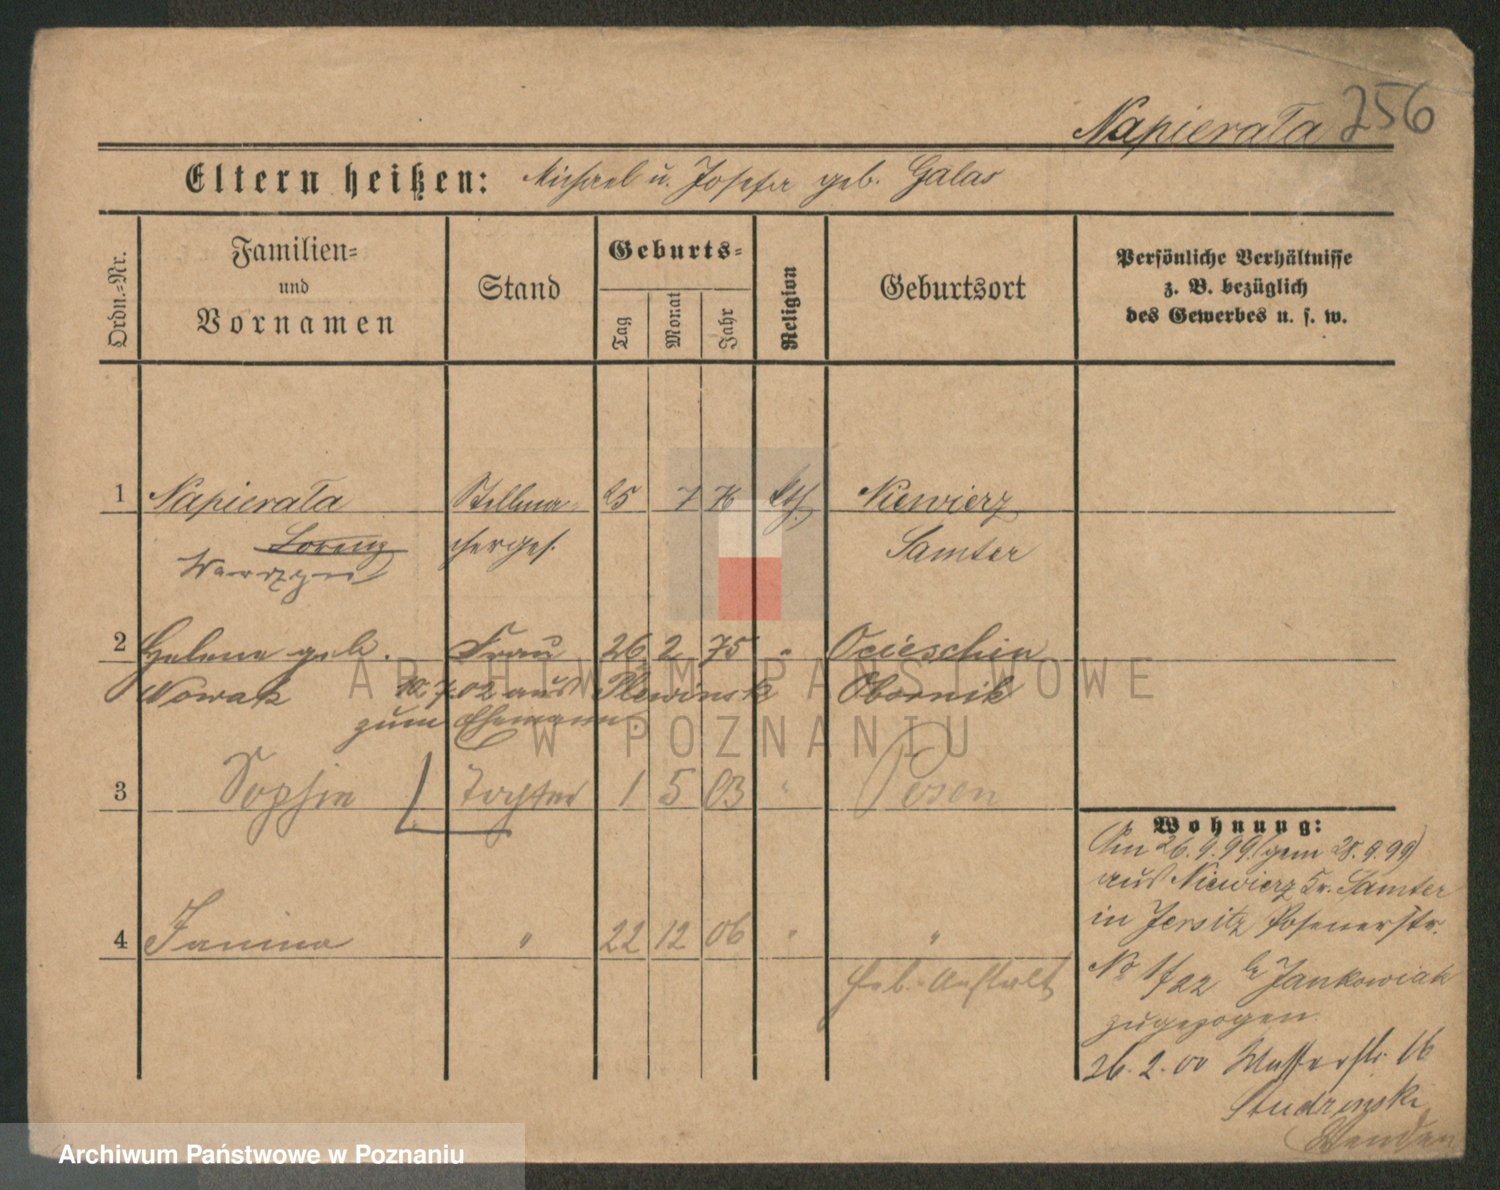 Napierała 256
Eltern heißen: Michael u. Josefa geb. Galas
Ordn.=Nr.
Familien=
und
Vornamen
Stand
Geburts=
Tag
Monat
Jahr
Religion
Geburtsort
Persönliche Verhältnisse
z. B. bezüglich
des Gewerbes u. s. w.
1 Napierała Stellma- 25 7 76 kth. Niewierz
Lorenz cherges. Samter
Wawrzyn
2 Helena geb. Frau 26 2 75 " Ocieschin
Nowak 10.7.02 aus Plewinsk Obornik
zum Ehemann
3 Sophie Tochter 1 5 03 " Posen
4 Janina " 22 12 06 " "
Geb. Anstalt
Wohnung:
Am 26.9.99 (gem 28.9.99)
aus Niewierz Kr. Samter
in Jersitz Posenerstr.
No 1/22 bei Jankowiak
zugezogen.
26.2.00 Wasserstr. 16
Studzinski
ARCHIWUM PAŃSTWOWE
W POZNANIU
Archiwum Państwowe w Poznaniu